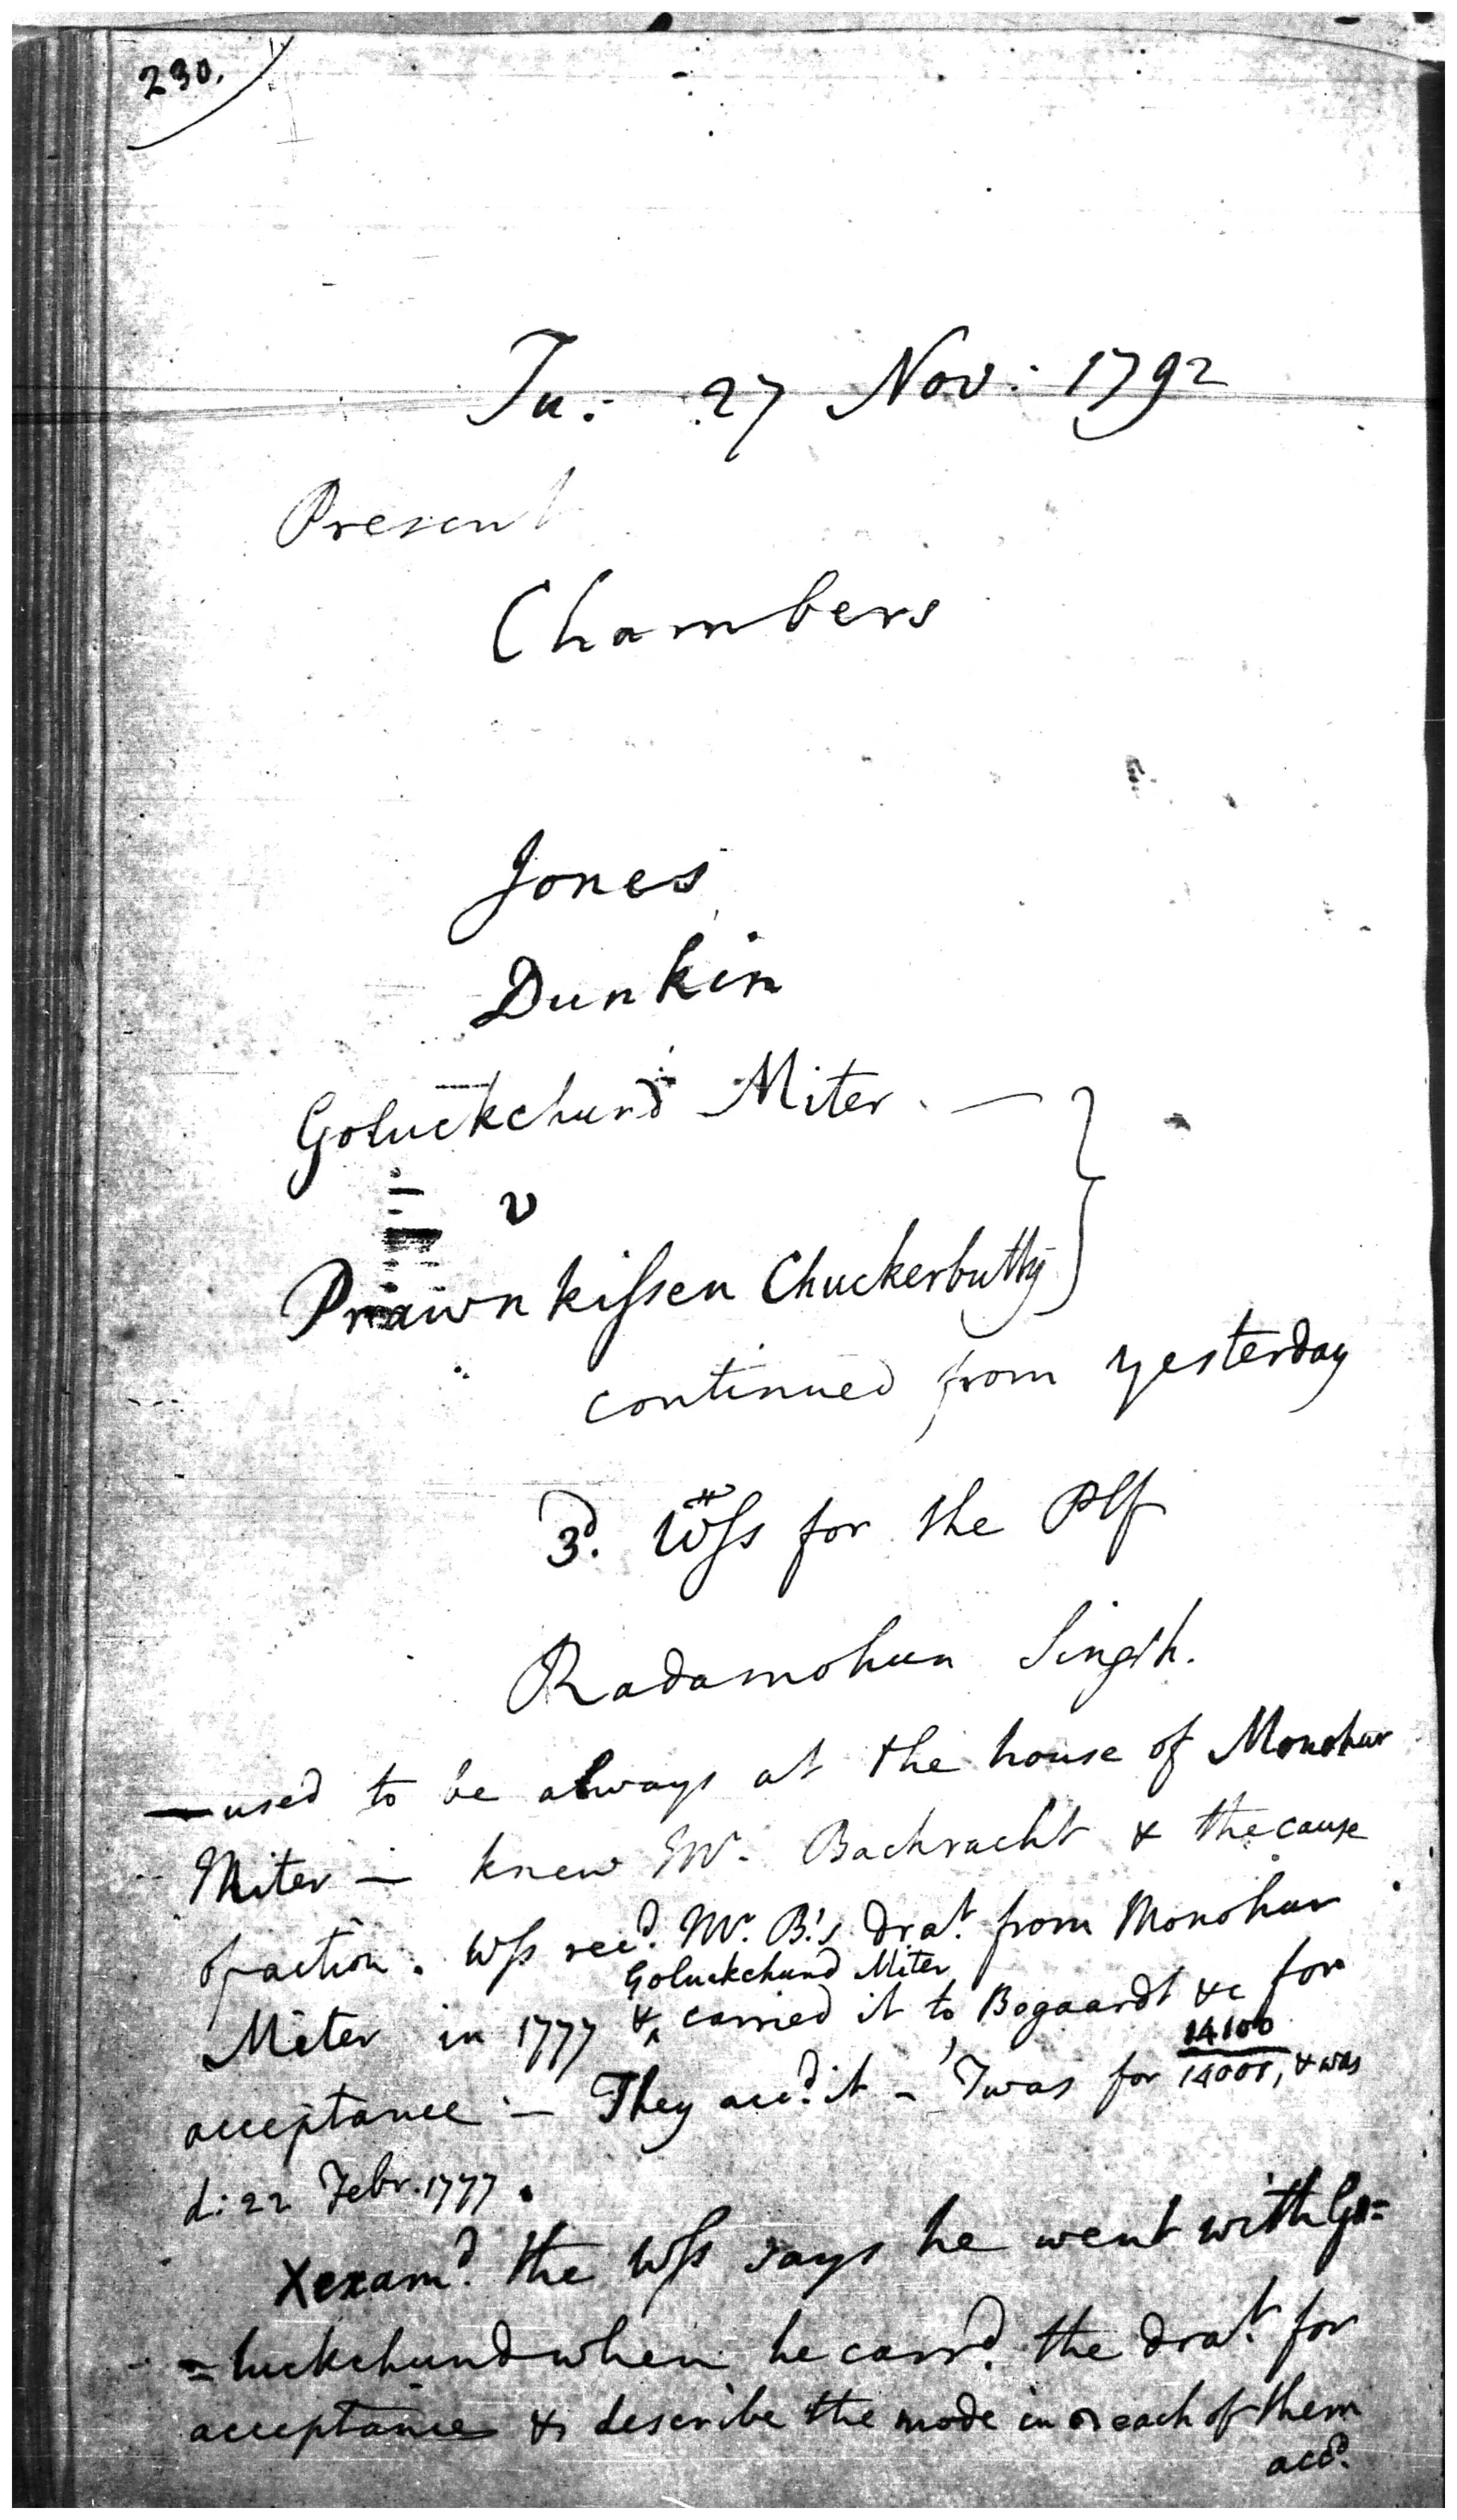 230.
Tu: 27 Nov: 1792
Present
Chambers
Jones
Dunkin
Goluckchund Miter. —
v
Prawnkissen Chuckerbutty
continued from yesterday
3d. Wss for the Plf
Radamohun Singh.
— used to be always at the house of Monohur
Miter — knew Mr. Bachracht & the cause
of action. Wss recd. Mr. B.'s drat. from Monohur
Goluckchund Miter
Miter in 1777 & carried it to Bogaardt &c for
14100
acceptance — They accd. it — 'Twas for 14000, & was
d: 22 Febr. 1777.
Xexamd. the Wss says he went with Go=
=luckchund when he carrd. the drat. for
acceptance & describe the mode in each of them
accd.